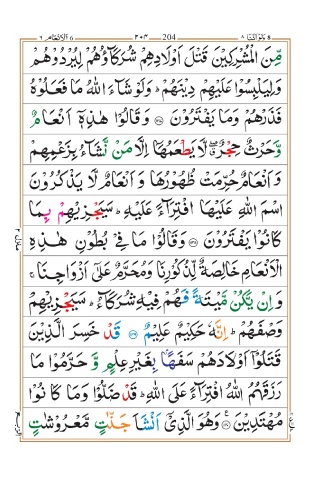 ولواننا ٨ 204 ٢٠٣ الانعام ٦
مِّنَ الْمُشْرِكِيْنَ قَتْلَ اَوْلَادِهِمْ شُرَكَآؤُهُمْ لِيُرْدُوْهُمْ
وَلِيَلْبِسُوْا عَلَيْهِمْ دِيْنَهُمْ ؕ وَلَوْ شَآءَ اللّٰهُ مَا فَعَلُوْهُ
فَذَرْهُمْ وَمَا يَفْتَرُوْنَ ﴿۱۳۷﴾ وَقَالُوْا هٰذِهٖۤ اَنْعَامٌ
وَّحَرْثٌ حِجْرٌ ۖ لَّا يَطْعَمُهَاۤ اِلَّا مَنْ نَّشَآءُ بِزَعْمِهِمْ
وَاَنْعَامٌ حُرِّمَتْ ظُهُوْرُهَا وَ اَنْعَامٌ لَّا يَذْكُرُوْنَ
اسْمَ اللّٰهِ عَلَيْهَا افْتِرَآءً عَلَيْهِ ؕ سَيَجْزِيْهِمْ بِمَا
كَانُوْا يَفْتَرُوْنَ ﴿۱۳۸﴾ وَقَالُوْا مَا فِيْ بُطُوْنِ هٰذِهِ
الْاَنْعَامِ خَالِصَةٌ لِّذُكُوْرِنَا وَمُحَرَّمٌ عَلٰٓى اَزْوَاجِنَا ۚ
وَاِنْ يَّكُنْ مَّيْتَةً فَهُمْ فِيْهِ شُرَكَآءُ ؕ سَيَجْزِيْهِمْ
وَصْفَهُمْ ؕ اِنَّهٗ حَكِيْمٌ عَلِيْمٌ ﴿۱۳۹﴾ قَدْ خَسِرَ الَّذِيْنَ
قَتَلُوْۤا اَوْلَادَهُمْ سَفَهًۢا بِغَيْرِ عِلْمٍ وَّ حَرَّمُوْا مَا
رَزَقَهُمُ اللّٰهُ افْتِرَآءً عَلَى اللّٰهِ ؕ قَدْ ضَلُّوْا وَمَا كَانُوْا
مُهْتَدِيْنَ ﴿۱۴۰﴾ وَهُوَ الَّذِيْۤ اَنْشَاَ جَنّٰتٍ مَّعْرُوْشٰتٍ